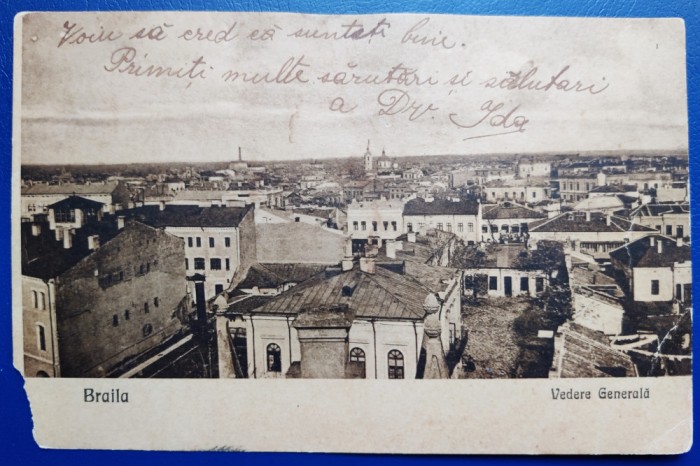 Voiu să cred că sunteți bine.
Primiți multe sărutări și salutari
a Dv. Ida
Braila
Vedere Generală